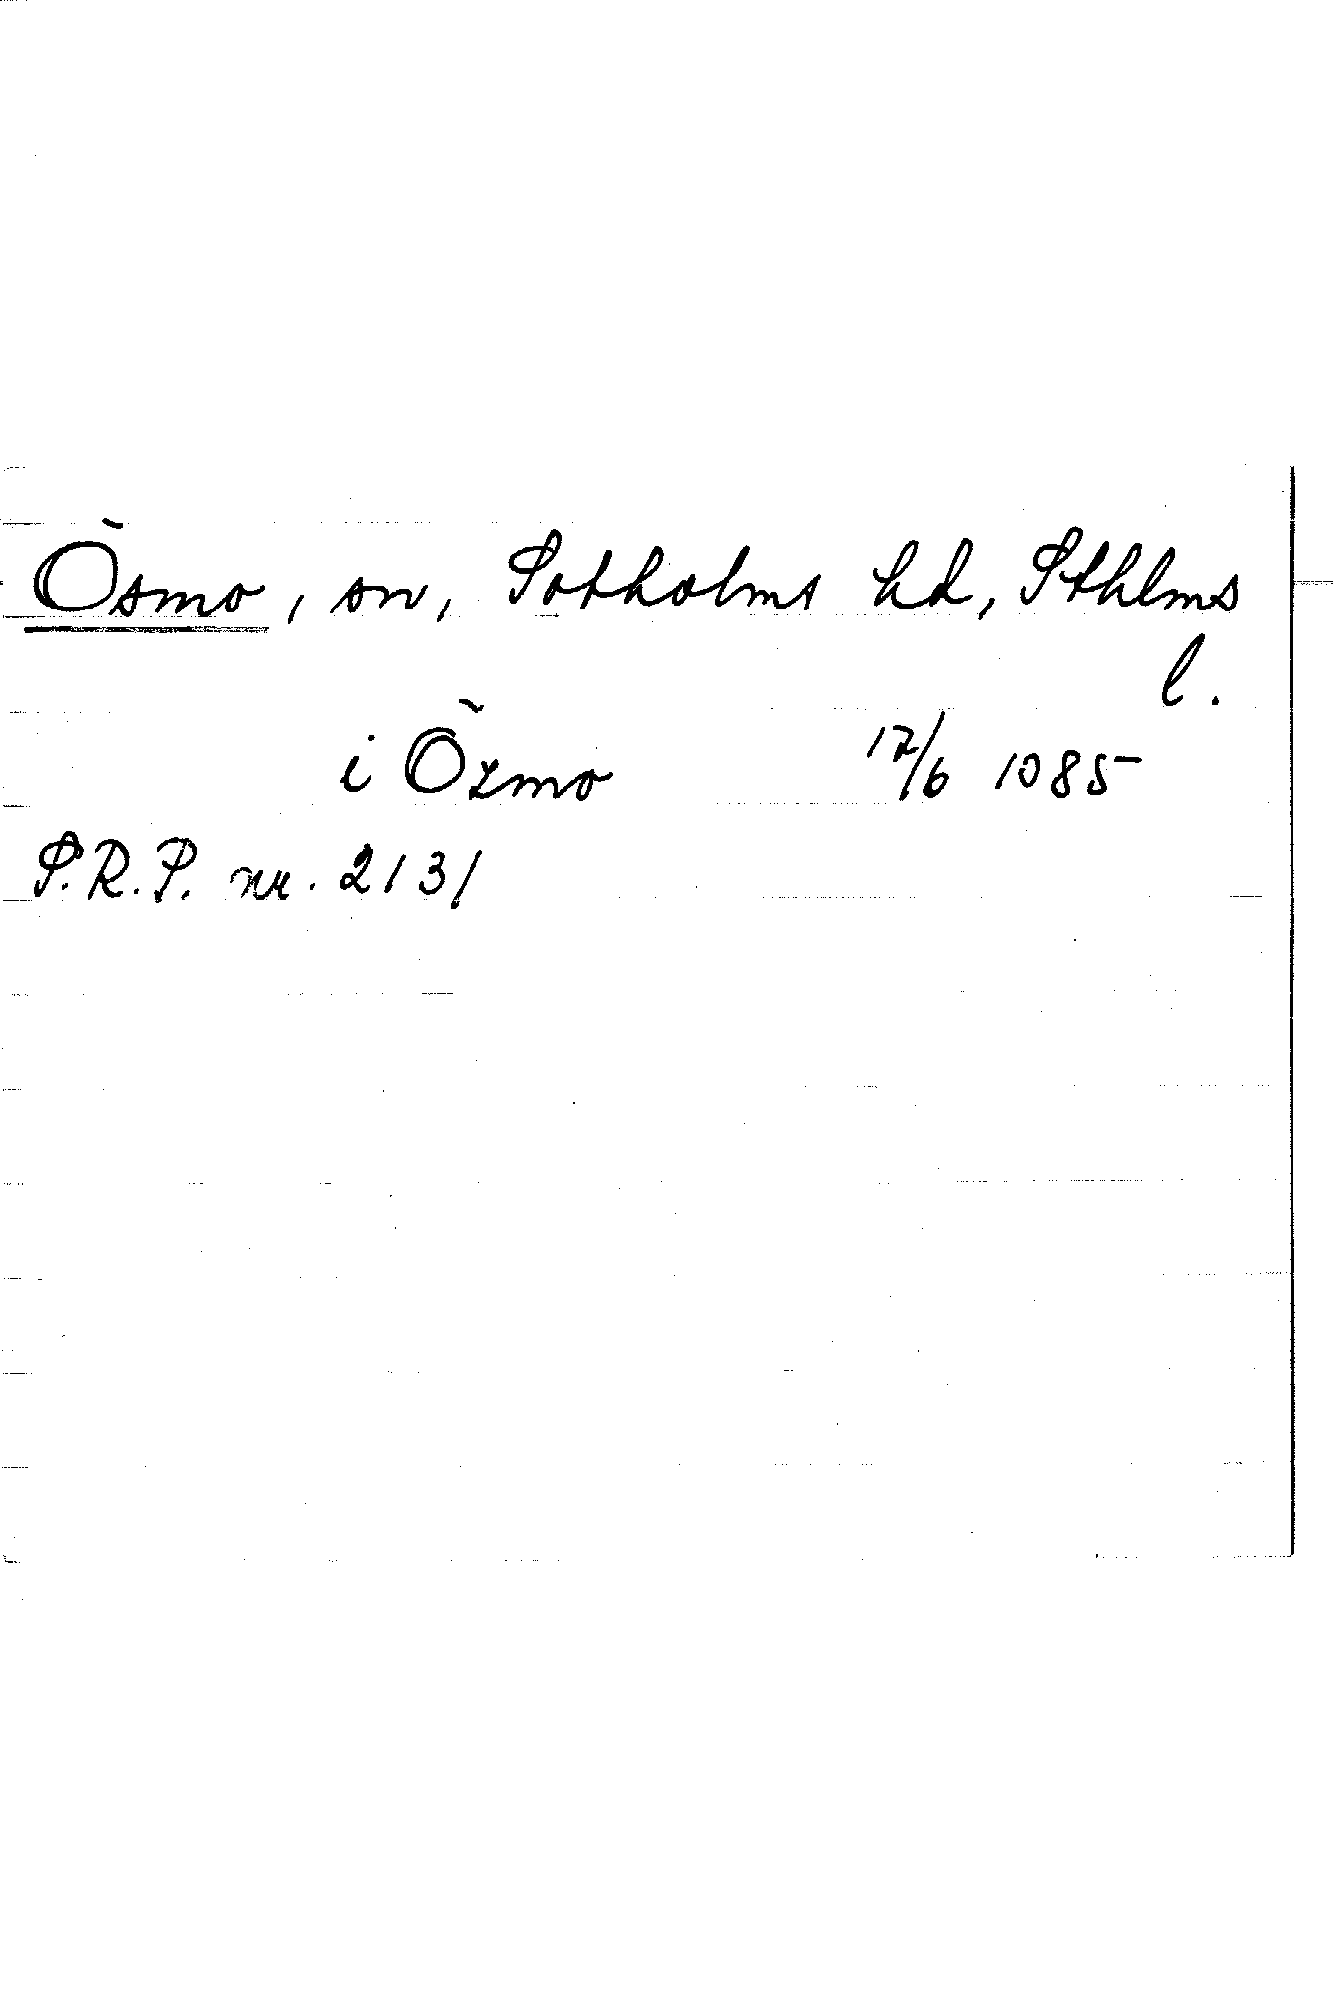 Ösmo, sn, Sotholms hd, Sthlms
l.
i Özmo 17/6 1385
S.R.P. nr. 2131